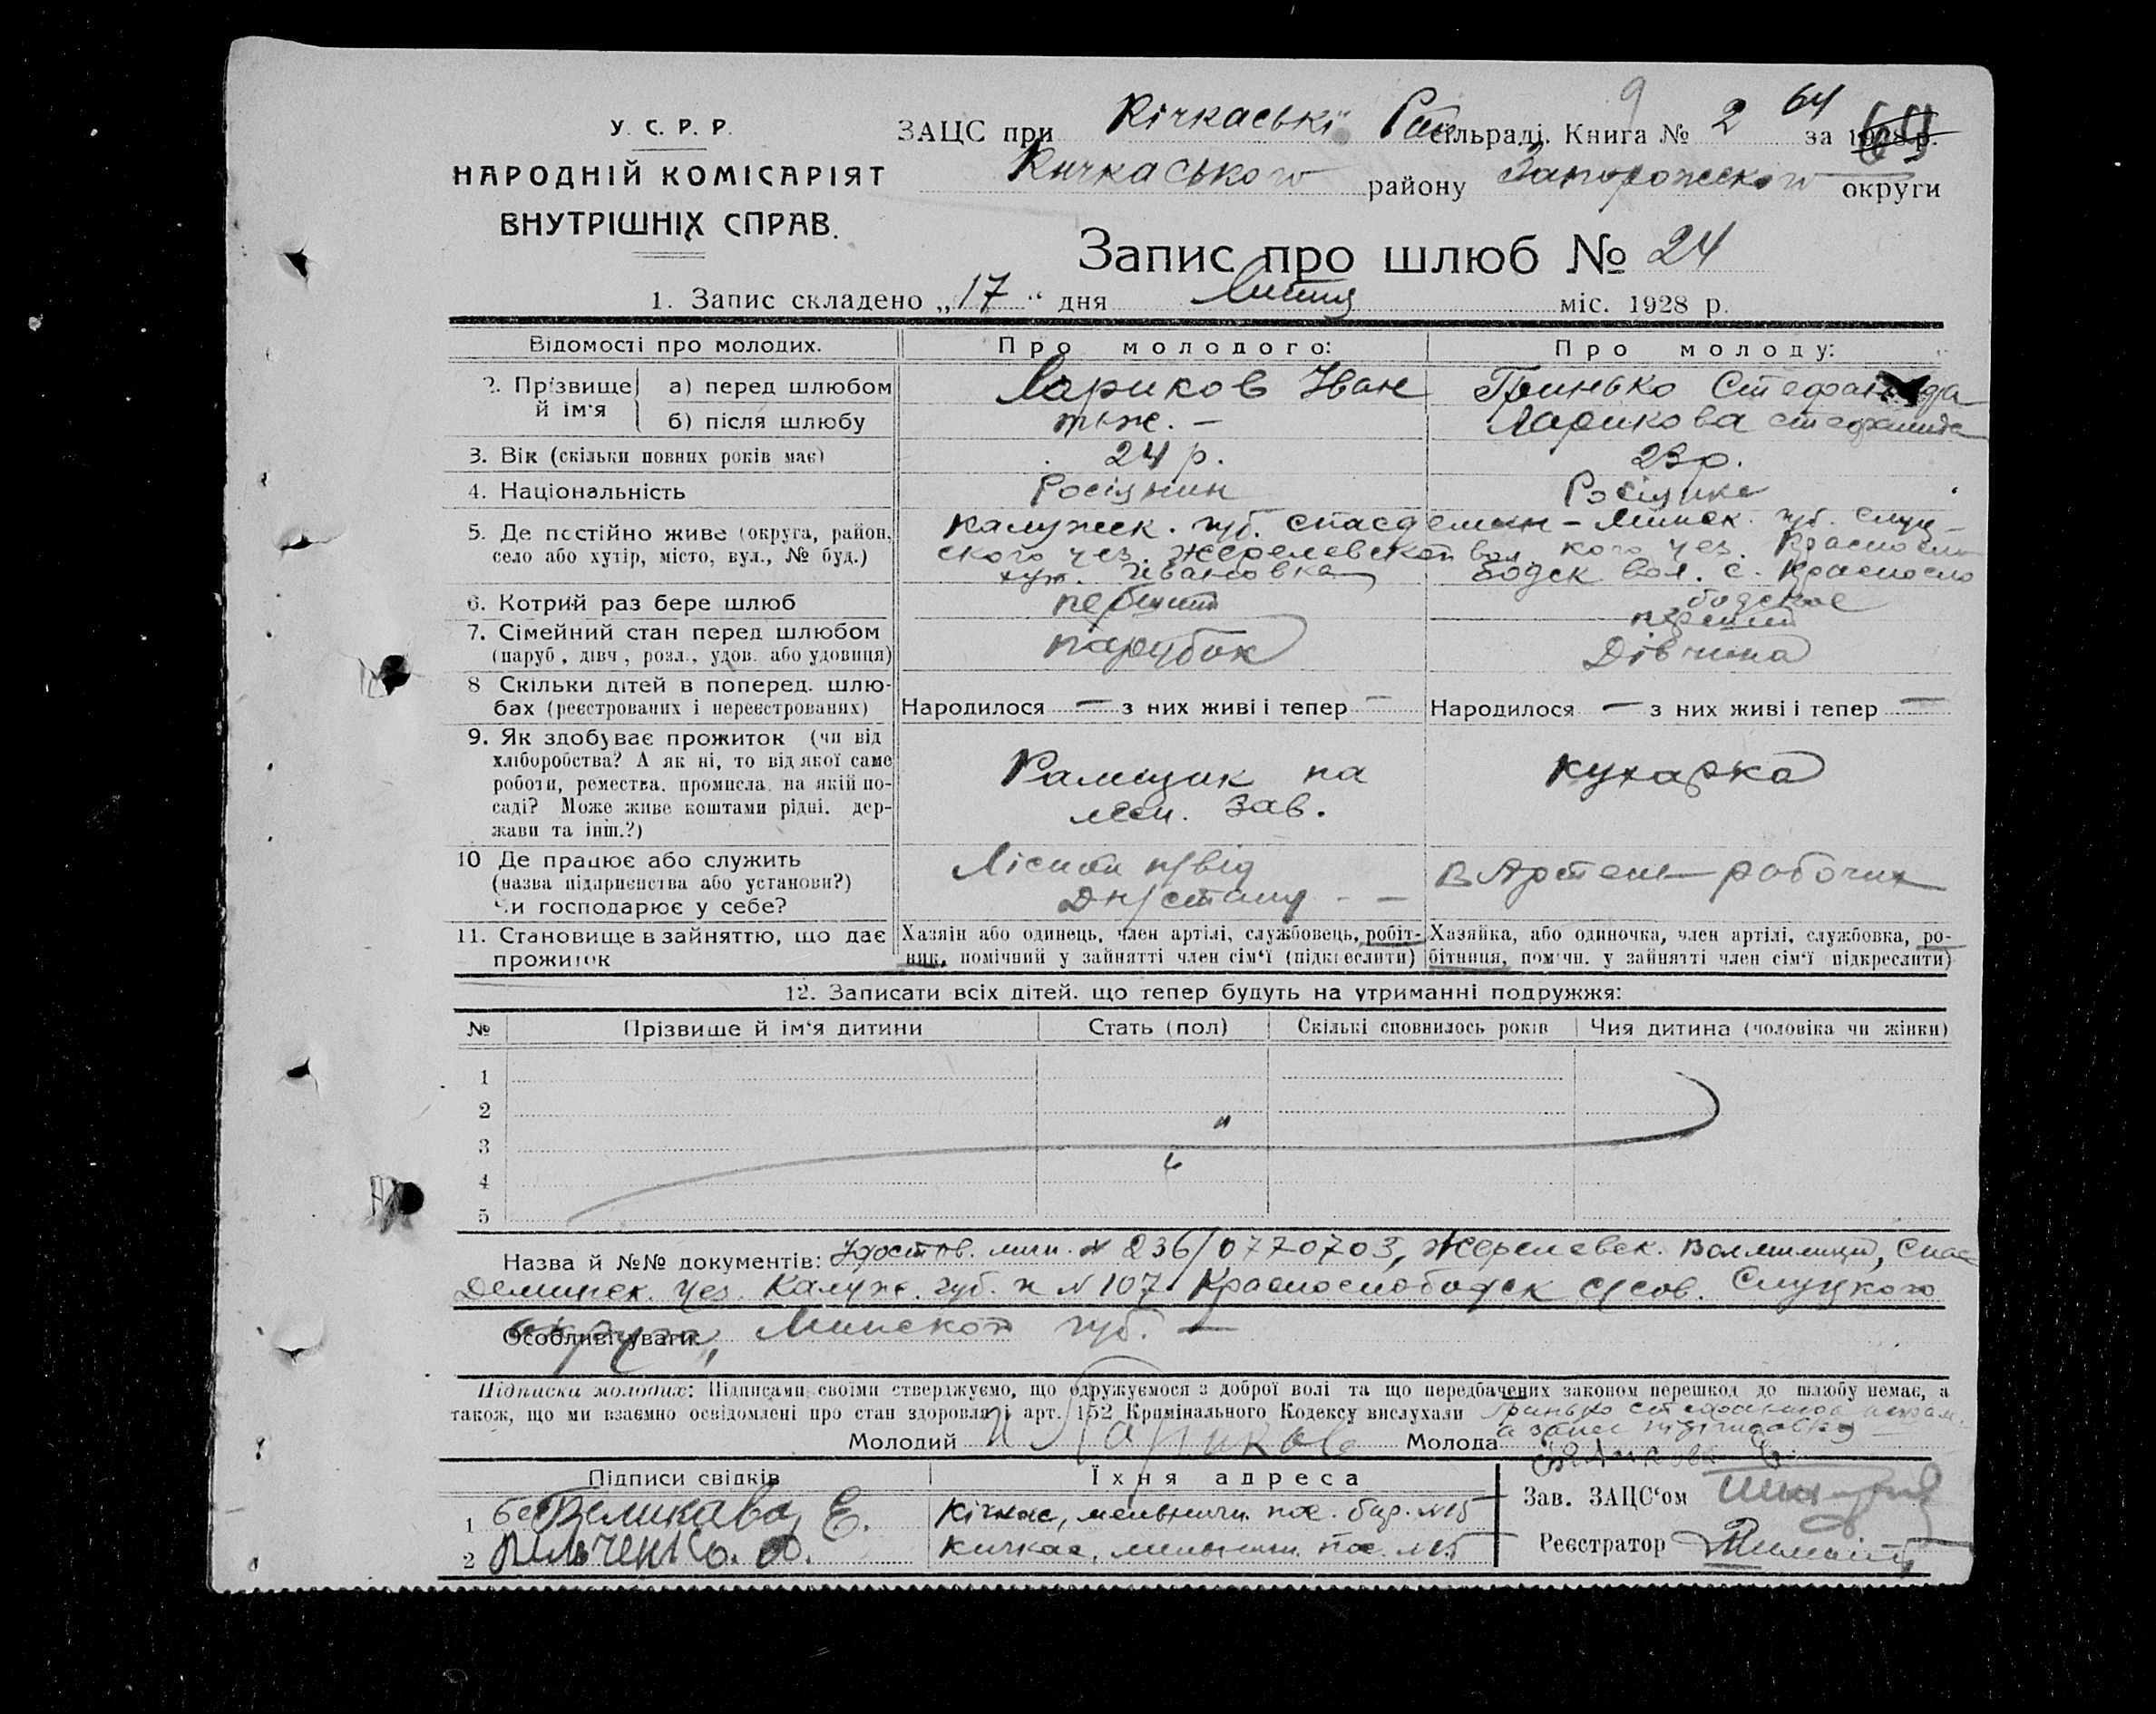 У. С. Р. Р.
НАРОДНІЙ КОМІСАРІЯТ
ВНУТРІШНІХ СПРАВ.
9
64
ЗАЦС при Кічкаській Рай сільраді. Книга № 2 за 1928 р.
Кичкаського району Запорожського округи
Запис про шлюб № 24
1. Запис складено „17" дня Липня міс. 1928 р.
Відомості про молодих. Про молодого: Про молоду:
2. Прізвище й ім'я а) перед шлюбом Лариков Іван Гринько Стефанида
б) після шлюбу тьже. — Ларикова Стефанида
3. Вік (скільки повних років має) 24 р. 23 р.
4. Національність Росіянин Росіянка
5. Де постійно живе (округа, район, село або хутір, місто, вул., № буд.)
Калужск. губ. Спасдемян-
ского уез. Жерелевской вол.
хут. Ивановка
Минск. губ. Слуц-
кого уез. Красносло-
бодск вол. с. Краснослободское
6. Котрий раз бере шлюб первший первший
7. Сімейний стан перед шлюбом парубок Дівчина
(паруб., дівч., розл., удов. або удовиця)
8 Скільки дітей в поперед. шлю-
бах (реєстрованих і нереєстрованих) Народилося — з них живі і тепер — Народилося — з них живі і тепер —
9. Як здобуває прожиток (чи від
хліборобства? А як ні, то від якої саме
роботи, ремества, промисла, на якій по-
саді? Може живе коштами рідні, дер-
жави та інш.?)
Рамщик на
лісн. зав.
кухарка
10 Де працює або служить
(назва підприємства або установи?)
Чи господарює у себе?
Лісний п/від
Дн/стану - —
В Артели робочих
11. Становище в зайняттю, що дає
прожиток
Хазяїн або одинець, член артілі, службовець, робіт-
ник, помічний у зайнятті член сім'ї (підкреслити)
Хазяйка, або одиночка, член артілі, службовка, ро-
бітниця, пом'чн. у зайнятті член сім'ї підкреслити)
12. Записати всіх дітей, що тепер будуть на утриманні подружжя:
№ Прізвище й ім'я дитини Стать (пол) Скількі сповнилось років Чия дитина (чоловіка чи жінки)
1
2
3
4
5
Назва й №№ документів: Удостов. личн. № 236/0770703, Жерелевск. Волмилиции, Спас
Деминск. уез. Калужс. губ. и № 107 Краснослободск с/сов. Слуцкого
Особливі уваги: округа, Минской губ. —
Підписи молодих: Підписами своїми стверджуємо, що одружуємося з доброї волі та що передбачених законом перешкод до шлюбу немає, а
також, що ми взаємно освідомлені про стан здоровля і арт. 152 Кримінального Кодексу вислухали Гринько Стефанида
Молодий И Лариков Молода
Підписи свідків Їхня адреса
1 Великава Е. Кічкас, мельничн. пос. буд. №15
2 Вільченко. Кичкас, мельничн. пос. №15
Зав. ЗАЦС'ом
Реєстратор